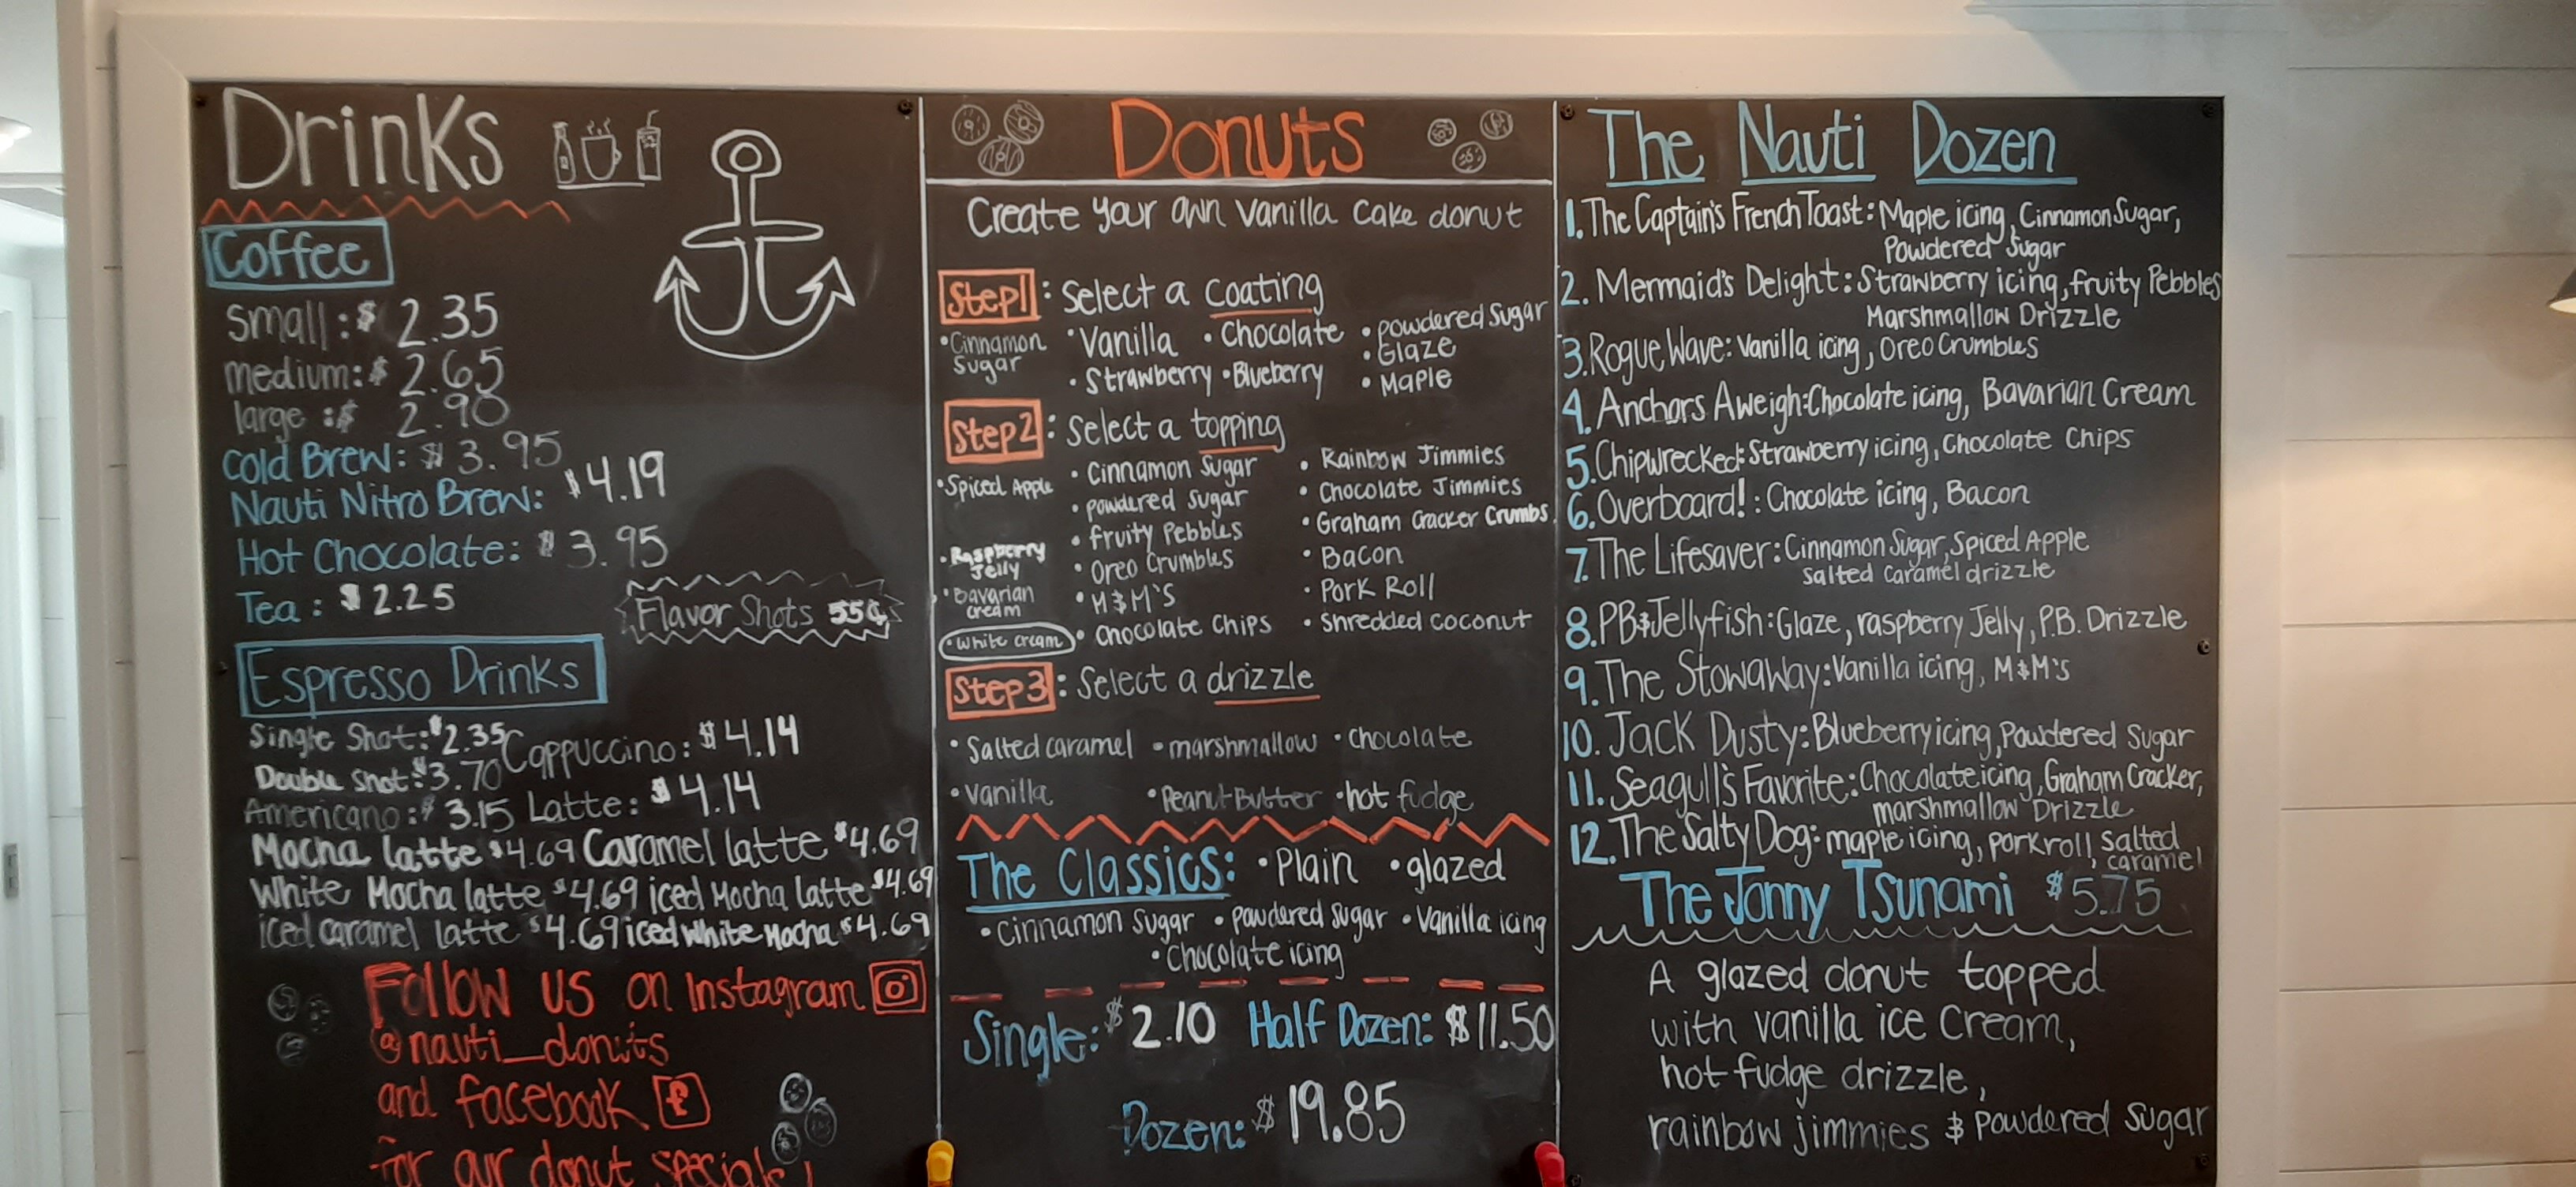 Drinks
Coffee
Small: $ 2.35
medium: $ 2.65
large: $ 2.90
Cold Brew: $ 3.95
Nauti Nitro Brew: $4.19
Hot Chocolate: $ 3.95
Tea: $ 2.25
Flavor Shots 55¢
Espresso Drinks
Single Shot: $2.35 Cappuccino: $4.14
Double Shot: $3.70
Americano: $3.15 Latte: $4.14
Mocha latte $4.69 Caramel latte $4.69
White Mocha latte $4.69 iced Mocha latte $4.69
iced caramel latte $4.69 iced white Mocha $4.69
Follow us on Instagram
@nauti_donuts
and facebook f
for our donut specials!
Donuts
Create your own vanilla cake donut
Step1: Select a coating
• Cinnamon Sugar
• Vanilla • Chocolate • powdered Sugar
• Glaze
• Strawberry • Blueberry • Maple
Step2: Select a topping
• Spiced Apple
• Raspberry Jelly
• Bavarian cream
• White cream
• Cinnamon Sugar
• powdered sugar
• fruity Pebbles
• Oreo Crumbles
• M&M'S
• Chocolate Chips
• Rainbow Jimmies
• Chocolate Jimmies
• Graham Cracker Crumbs
• Bacon
• Pork Roll
• Shredded coconut
Step3: Select a drizzle
• Salted caramel • marshmallow • chocolate
• vanilla • Peanut Butter • hot fudge
The Classics: • Plain • glazed
• cinnamon sugar • powdered sugar • Vanilla icing
• Chocolate icing
Single: $2.10 Half Dozen: $11.50
Dozen: $19.85
The Nauti Dozen
1. The Captain's French Toast: Maple icing, Cinnamon Sugar,
Powdered Sugar
2. Mermaid's Delight: Strawberry icing, fruity Pebbles
Marshmallow Drizzle
3. Rogue Wave: Vanilla icing, Oreo Crumbles
4. Anchors Aweigh: Chocolate icing, Bavarian Cream
5. Chipwrecked: Strawberry icing, Chocolate Chips
6. Overboard!: Chocolate icing, Bacon
7. The Lifesaver: Cinnamon Sugar, Spiced Apple
Salted Caramel drizzle
8. PB&Jellyfish: Glaze, raspberry Jelly, P.B. Drizzle
9. The Stowaway: Vanilla icing, M&M's
10. Jack Dusty: Blueberry icing, Powdered Sugar
11. Seagull's Favorite: Chocolate icing, Graham Cracker,
marshmallow Drizzle
12. The Salty Dog: maple icing, pork roll, salted
caramel
The Jonny Tsunami $5.75
A glazed donut topped
with vanilla ice Cream,
hot fudge drizzle,
rainbow jimmies & powdered sugar